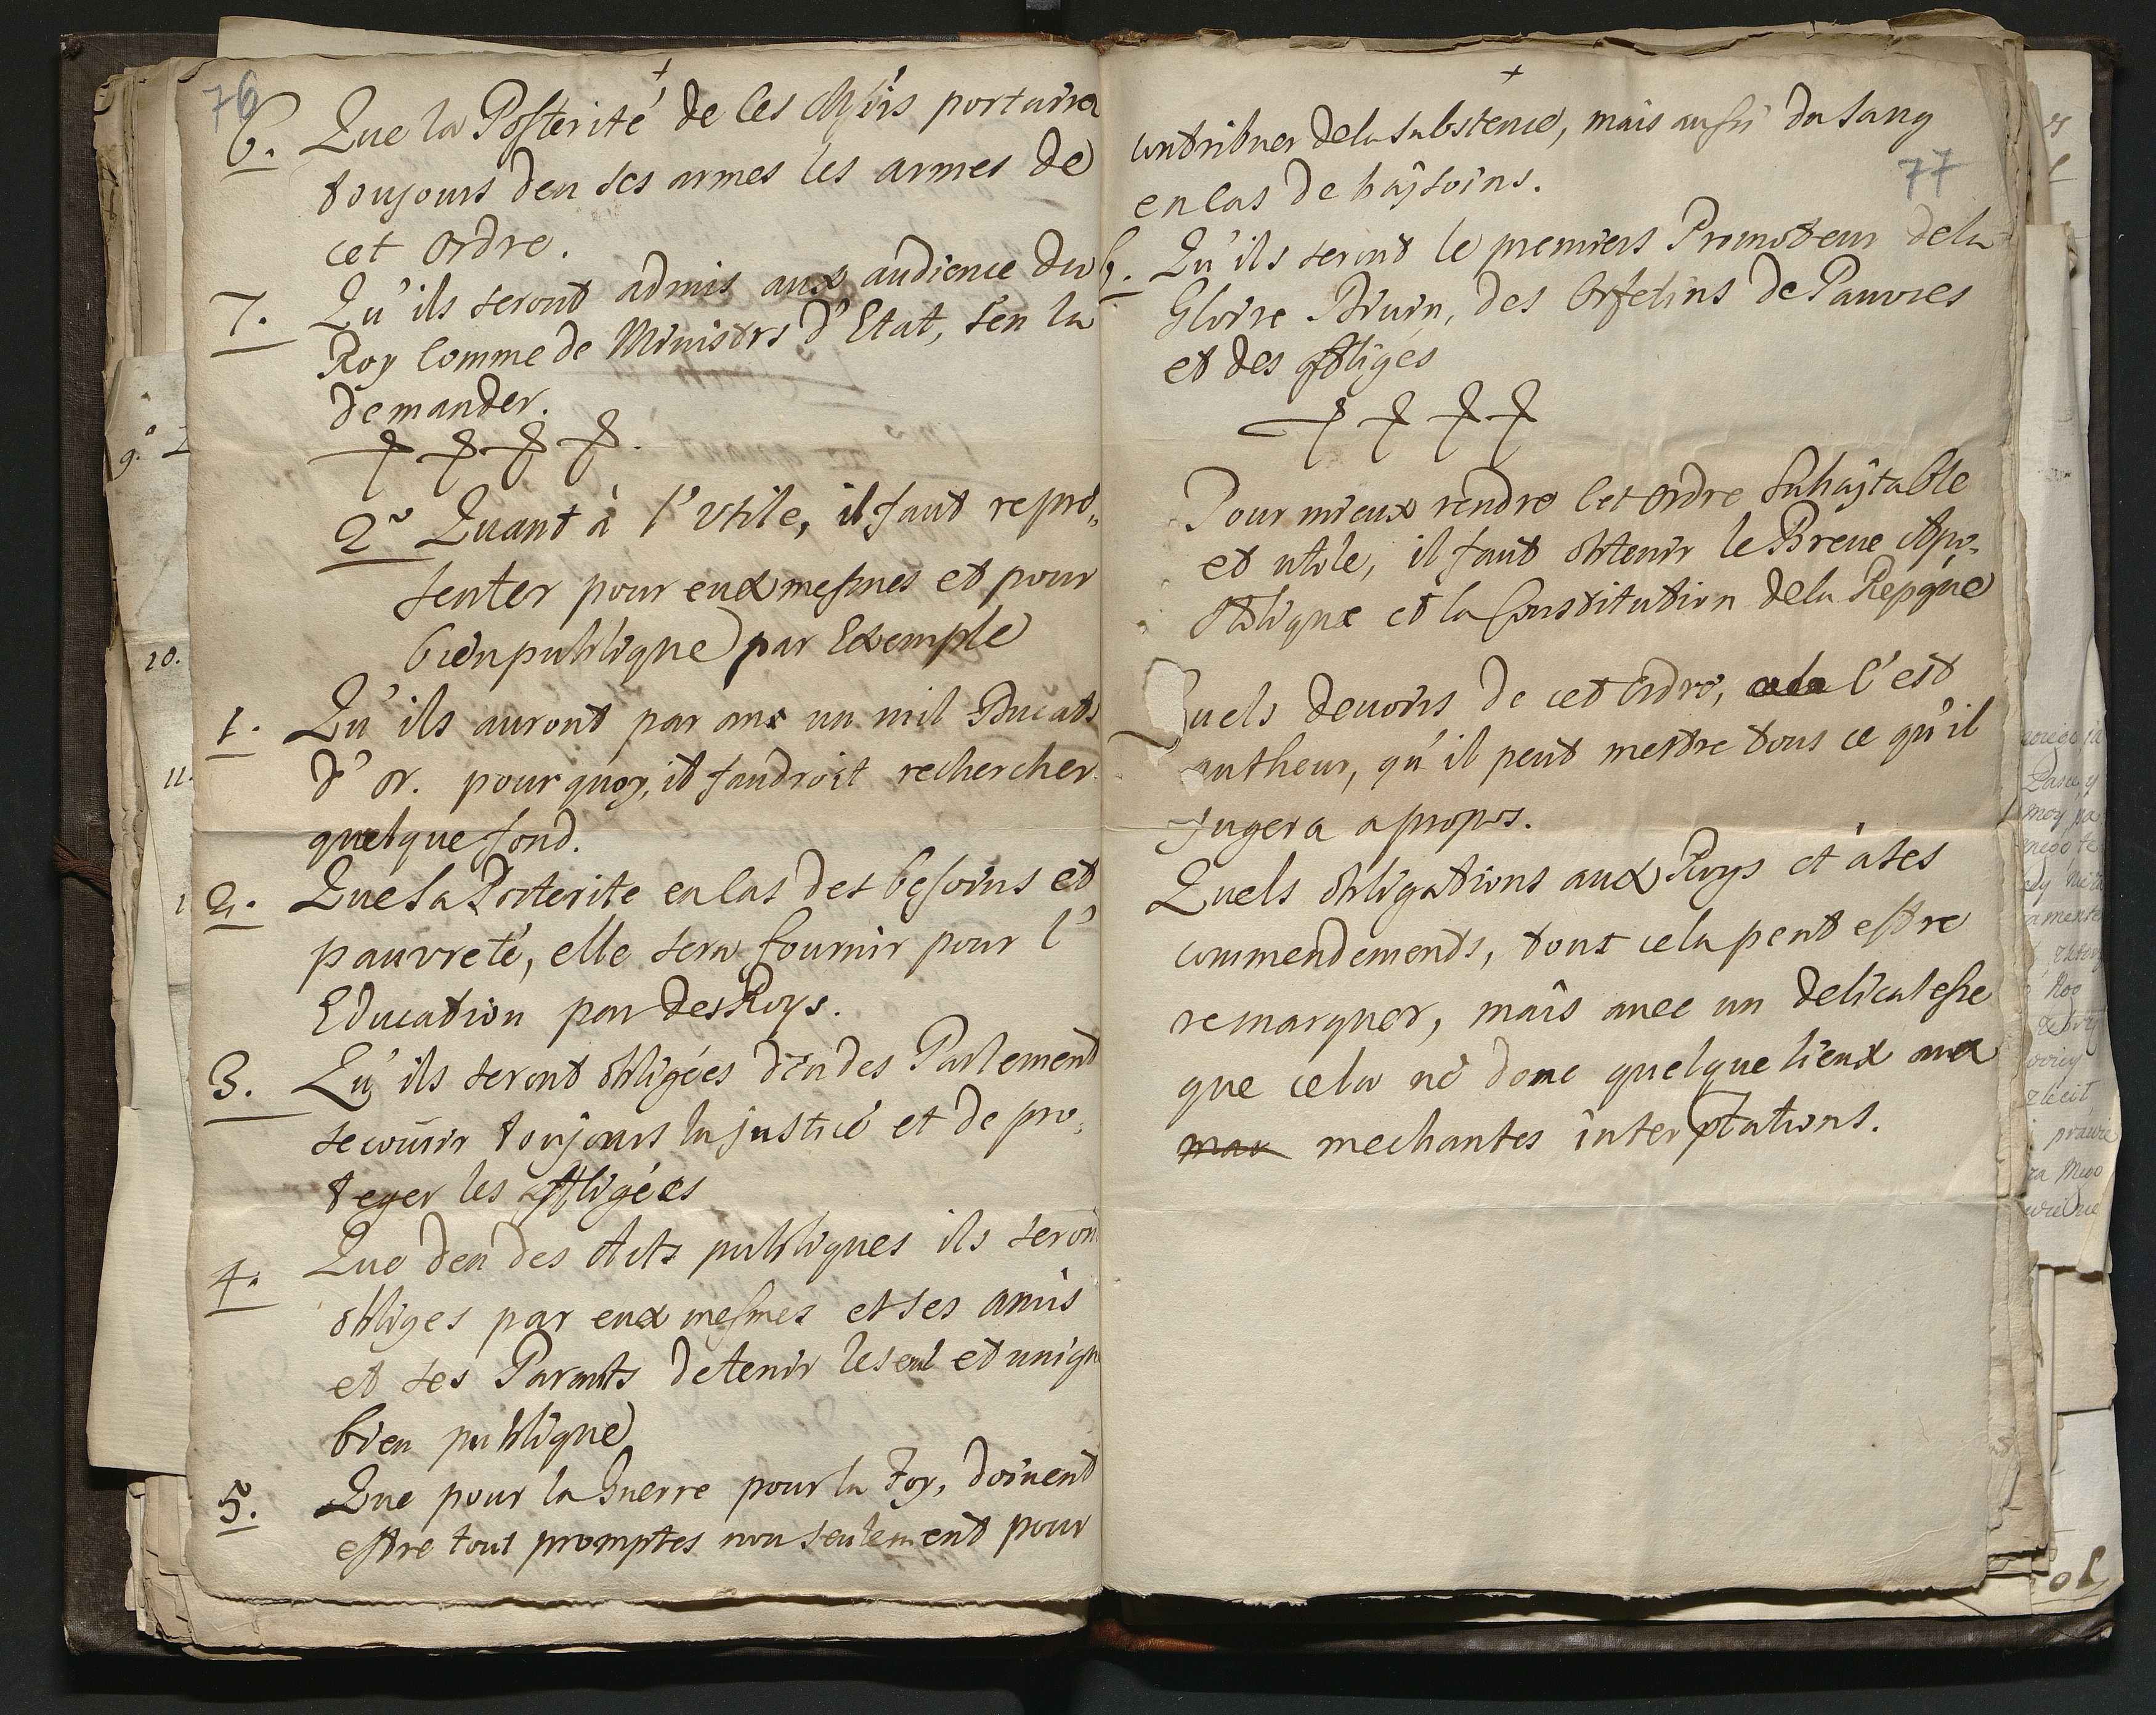 76
+
6. Que la Posterité de ces
toujours den ses armes les armes de
cet ordre.
7. Qu'ils seront admis aux audience du
Roy comme de Ministrs d'Etat, s'en la
demander.
2º Quant à l'Utile, il faut repre„
senter pour eux mesmes et pour
bien publique par Exemple
1. Qu'ils auront par ans un mil Ducats
d'or. pour quoy, il faudroit rechercher
quelque fond.
2. Que sa Posterite en cas des besoins et
pauvreté, elle sera fournir pour l'
Education par des Roys.
3. Qu'ils seront obligées den des Parlement
secourir toujours la justice et de pro„
teger les affligées
4. Que den des Acts publiques ils seron
obliges par eux mesmes et ses amis
et ses Parants de tenir le seul et uniqu
bien publique
5. Que pour la Guerre pour la Foy, doivent
estre tout promptes non seulement pour
+
77
contribuer de la substence, mais aussi du sang
en cas de bajsoins.
6. Qu'ils seront le premiers Promoteur de la
Gloire Divin, des Orfelins de Pauvres
et des affliges
Pour mieux rendre cet ordre suhajtable
et utile, il faut obtenir le Breve Apo„
stolique et la Constitution de la Repque
Quels devoirs de cet ordre, c'est
autheur, qu'il peut mettre tous ce qu'il
jugera a propos.
Quels obligations aux Roys et à ses
commendements, tout cela peut estre
remarquer, mais avec un delicatesse
que cela ne donc quelque lieux aux
mechantes interptations.
9.º
10.
11.